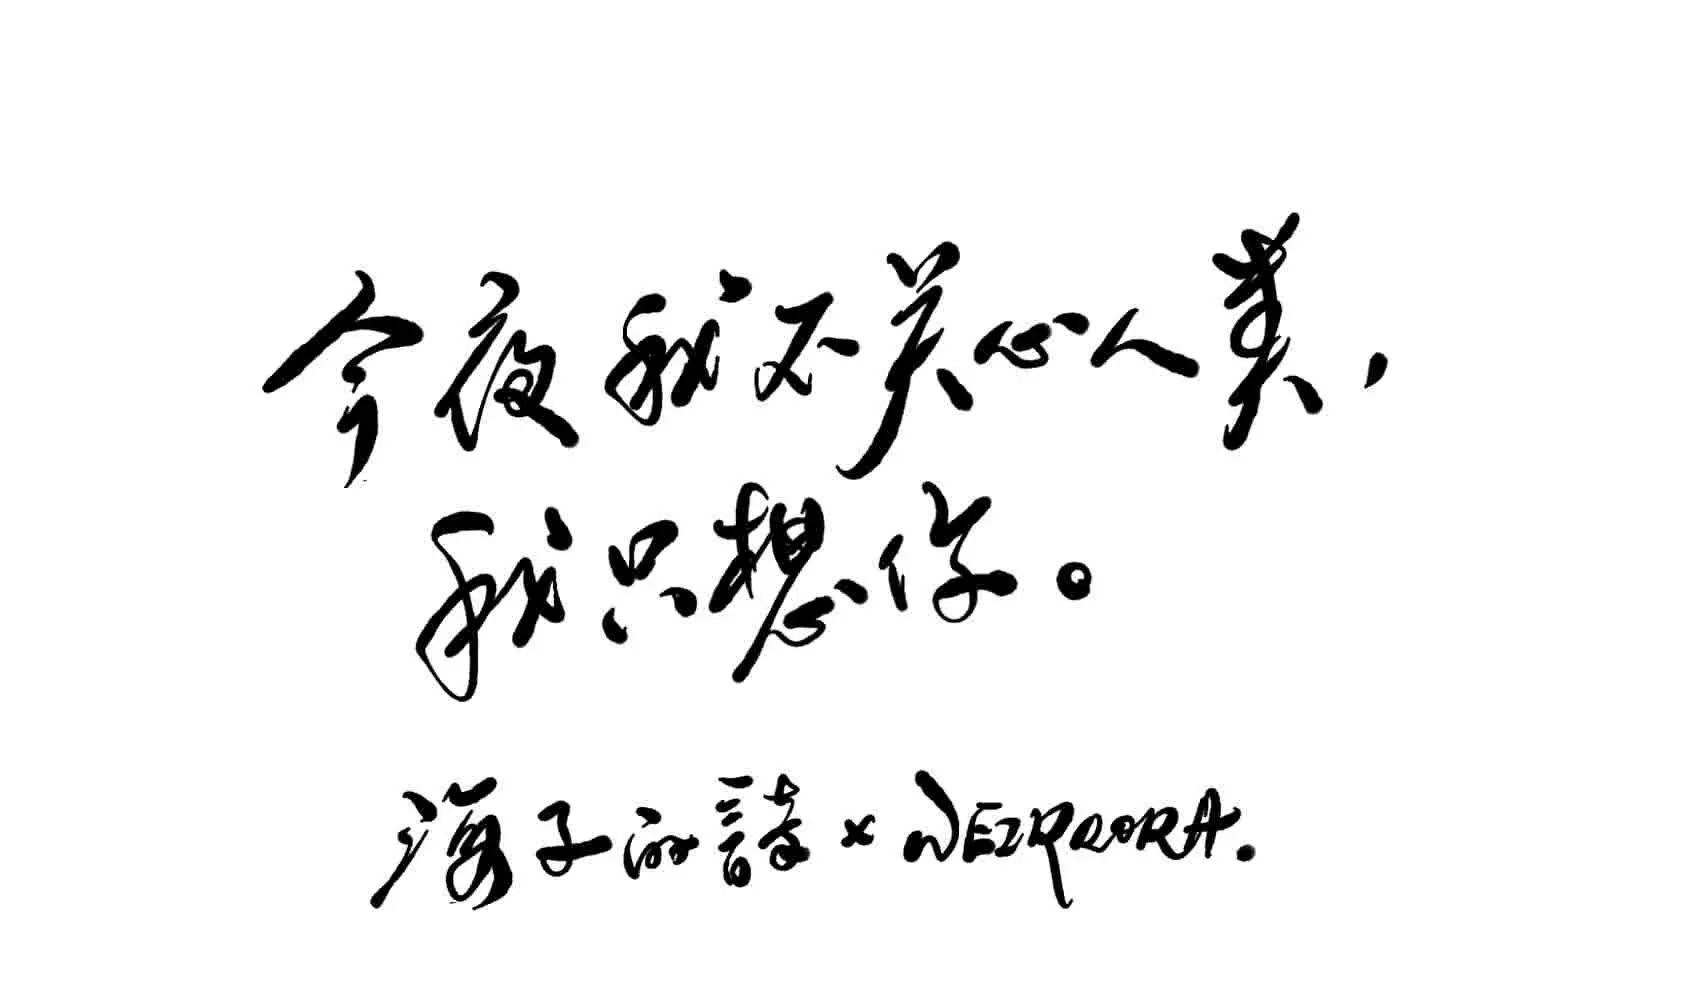 今夜我不关心人类，
我只想你。
海子的詩 ×